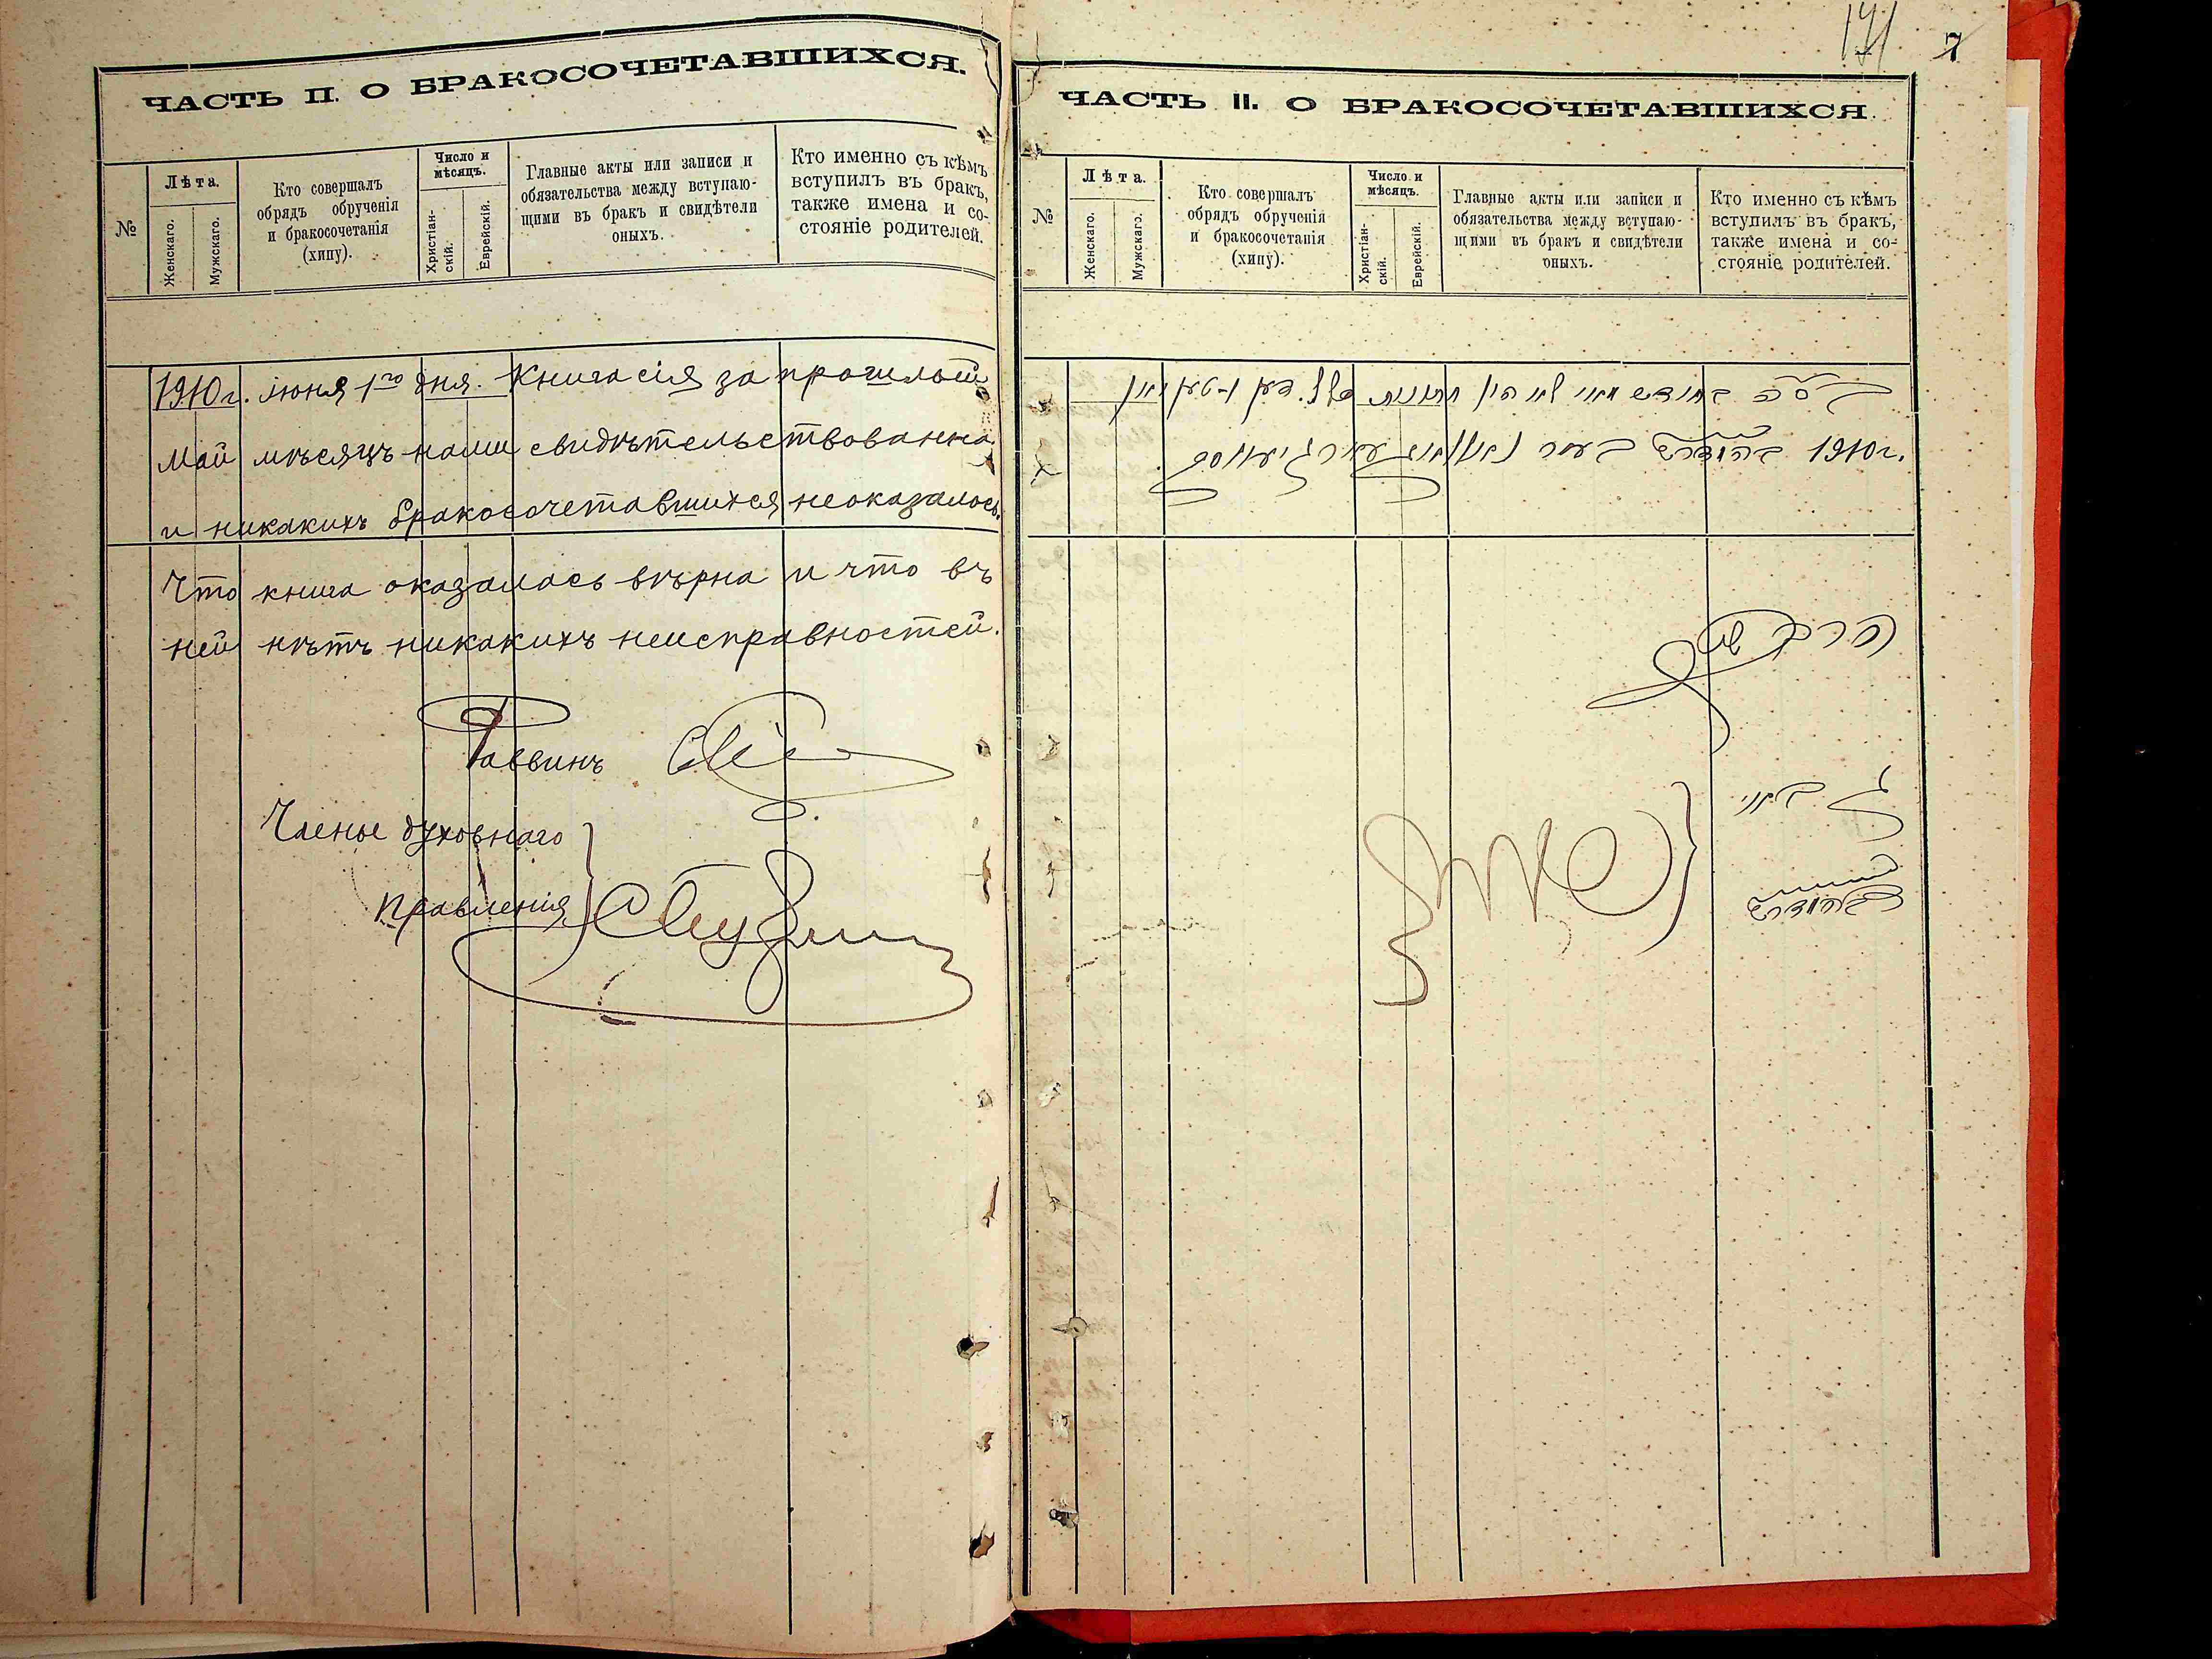 ЧАСТЬ II. О БРАКОСОЧЕТАВШИХСЯ.
№
Лѣта.
Женскаго.
Мужскаго.
Кто совершалъ
обрядъ обрученія
и бракосочетанія
(хипу).
Число и
мѣсяцъ.
Христіан-
скій.
Еврейскій.
Главные акты или записи и
обязательства между вступаю-
щими въ бракъ и свидѣтели
оныхъ.
Кто именно съ кѣмъ
вступилъ въ бракъ,
также имена и со-
стояніе родителей.
1910 г. іюня 1го дня. Книга сія за прошлый
Май мѣсяцъ нами свидѣтельствованна
и никакихъ бракосочетавшихся неоказалось.
Что книга оказалась вѣрна и что въ
ней нѣтъ никакихъ неисправностей.
Раввинъ
Члены духовнаго
Правленія
171 7
ЧАСТЬ II. О БРАКОСОЧЕТАВШИХСЯ.
№
Лѣта.
Женскаго.
Мужскаго.
Кто совершалъ
обрядъ обрученія
и бракосочетанія
(хипу).
Число и
мѣсяцъ.
Христіан-
скій.
Еврейскій.
Главные акты или записи и
обязательства между вступаю-
щими въ бракъ и свидѣтели
оныхъ.
Кто именно съ кѣмъ
вступилъ въ бракъ,
также имена и со-
стояніе родителей.
בחודש מאי לא היו
1910 г.
הרב